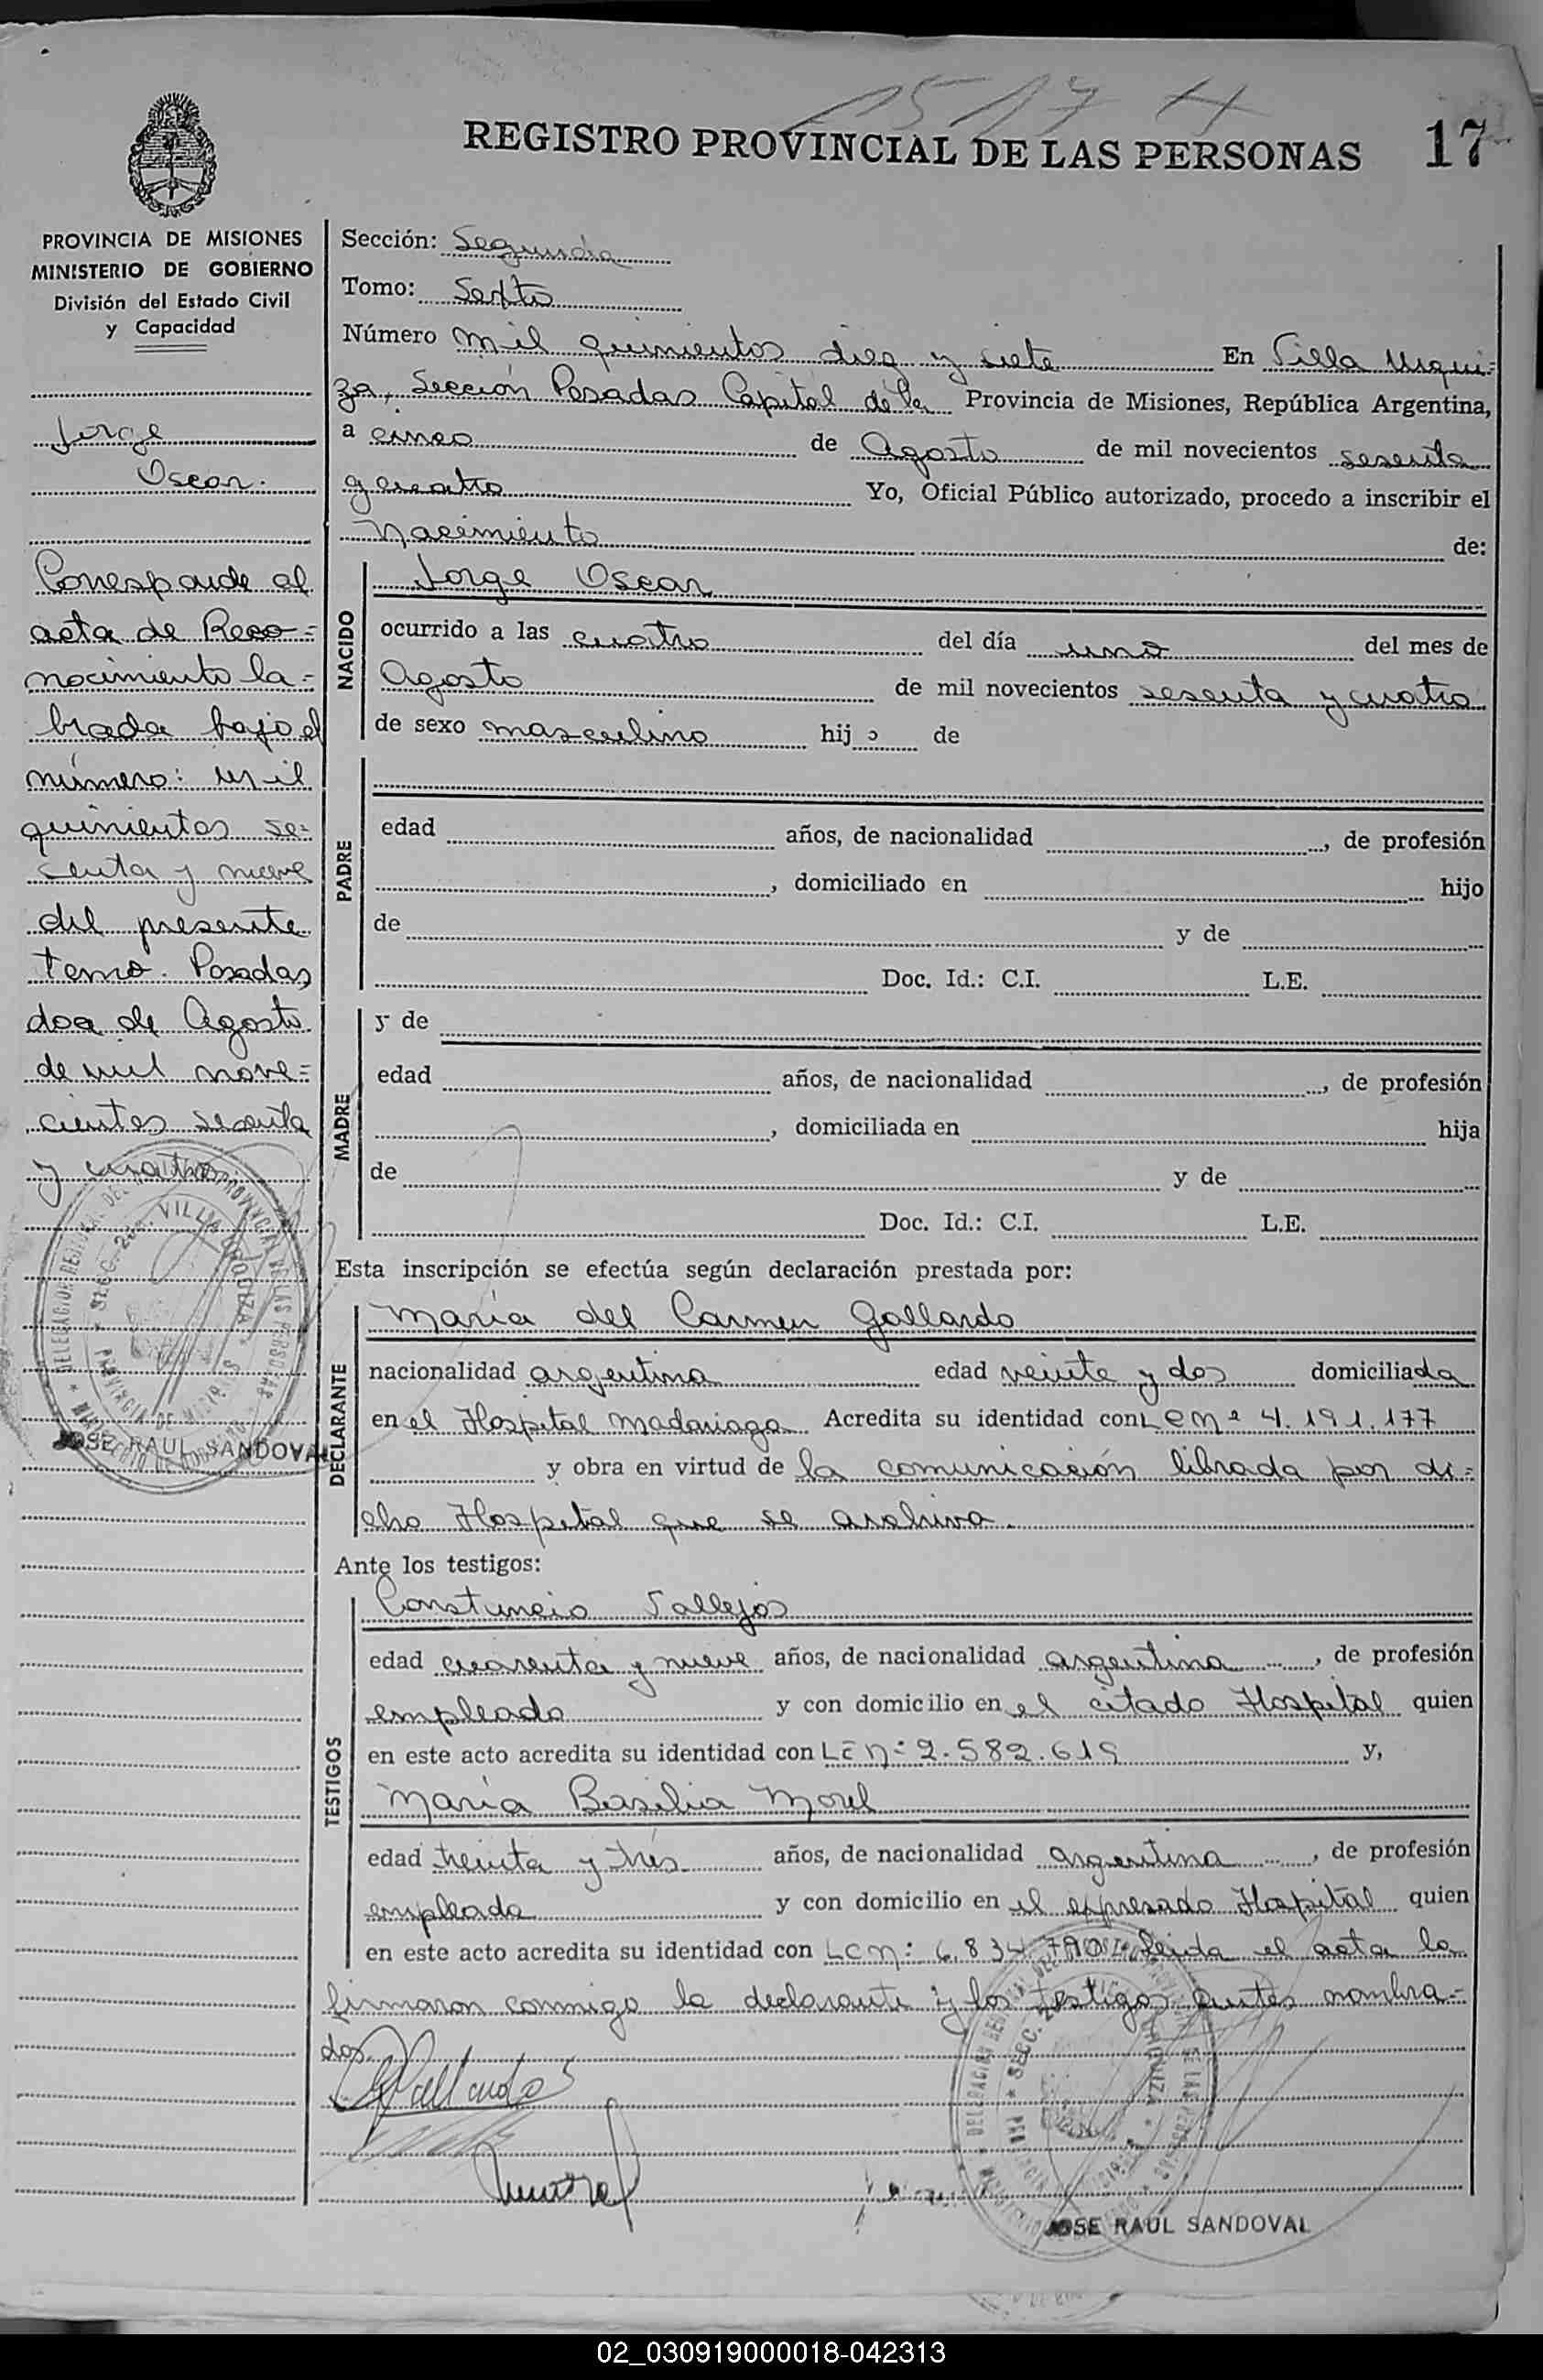 1517 H
REGISTRO PROVINCIAL DE LAS PERSONAS 17
PROVINCIA DE MISIONES
MINISTERIO DE GOBIERNO
División del Estado Civil
y Capacidad
Jorge
Oscar.
Corresponde al
acta de Reco=
nocimiento la=
brada bajo el
número: mil
quinientos se=
senta y nueve
del presente
tomo. Posadas,
doce de Agosto
de mil nove=
cientos sesenta
y cuatro
JOSE RAUL SANDOVAL
Sección: Segunda
Tomo: Sexto
Número mil quinientos diez y siete En Villa Urqui=
za, Sección Posadas Capital de la Provincia de Misiones, República Argentina,
a cinco de Agosto de mil novecientos sesenta
y cuatro Yo, Oficial Público autorizado, procedo a inscribir el
Nacimiento de:
NACIDO
Jorge Oscar
ocurrido a las cuatro del día uno del mes de
Agosto de mil novecientos sesenta y cuatro
de sexo masculino hijo de
PADRE
edad años, de nacionalidad , de profesión
, domiciliado en hijo
de y de
Doc. Id.: C.I. L.E.
MADRE
y de
edad años, de nacionalidad , de profesión
, domiciliada en hija
de y de
Doc. Id.: C.I. L.E.
Esta inscripción se efectúa según declaración prestada por:
DECLARANTE
María del Carmen Gallardo
nacionalidad argentina edad veinte y dos domiciliada
en el Hospital Madariaga Acredita su identidad con L C nº 4.191.177
y obra en virtud de la comunicación librada por di=
cho Hospital que se archiva.
Ante los testigos:
TESTIGOS
Constancio Vallejos
edad cuarenta y nueve años, de nacionalidad argentina , de profesión
empleado y con domicilio en el citado Hospital quien
en este acto acredita su identidad con LE nº 2.582.619 y,
María Basilia Morel
edad treinta y tres años, de nacionalidad argentina , de profesión
empleada y con domicilio en el expresado Hospital quien
en este acto acredita su identidad con LC n: 6.834.790 Leída el acta la
firmaron conmigo la declarante y los testigos antes nombra=
dos
Gallardo
JOSE RAUL SANDOVAL
02_030919000018-042313